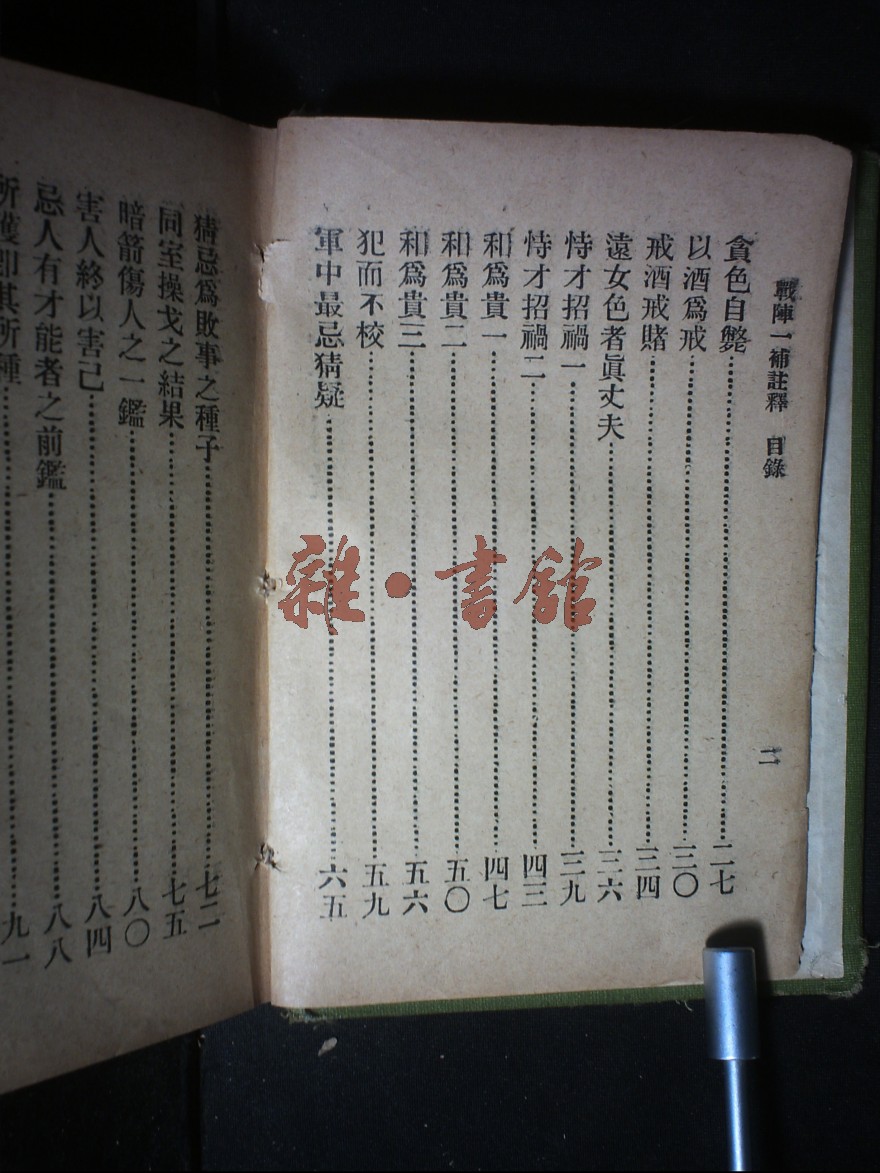 戰陣一補註釋 目錄
二
貪色自斃 二七
以酒爲戒 三〇
戒酒戒賭 三四
遠女色者眞丈夫 三六
恃才招禍一 三九
恃才招禍二 四三
和爲貴一 四七
和爲貴二 五〇
和爲貴三 五六
犯而不校 五九
軍中最忌猜疑 六五
猜忌爲敗事之種子 七二
同室操戈之結果 七五
暗箭傷人之一鑑 八〇
害人終以害己 八四
忌人有才能者之前鑑 八八
所獲即其所種 九一
雜·書館